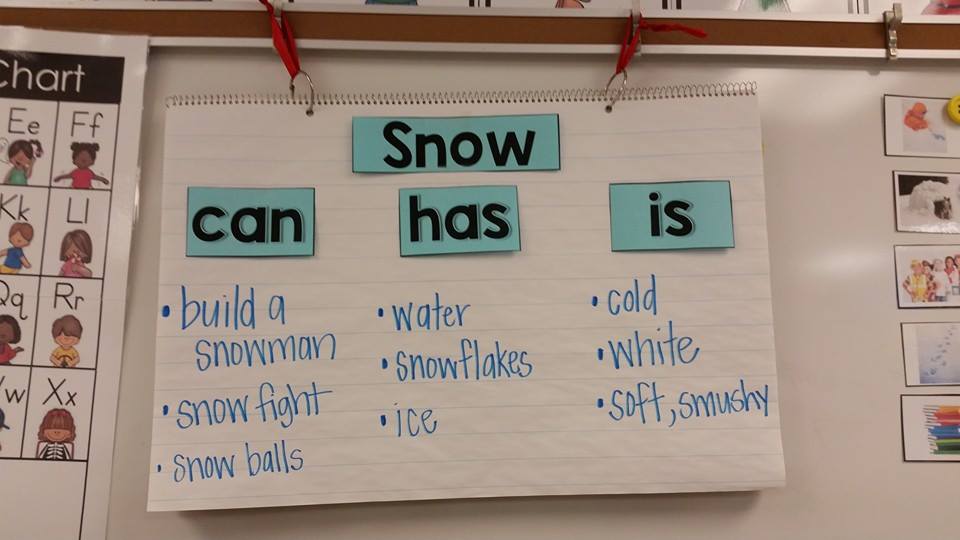 Chart
Ee Ff
Kk Ll
Qq Rr
Xx
Snow
can has is
• build a
snowman
• snow fight
• snow balls
• water
• snowflakes
• ice
• cold
• white
• soft, smushy